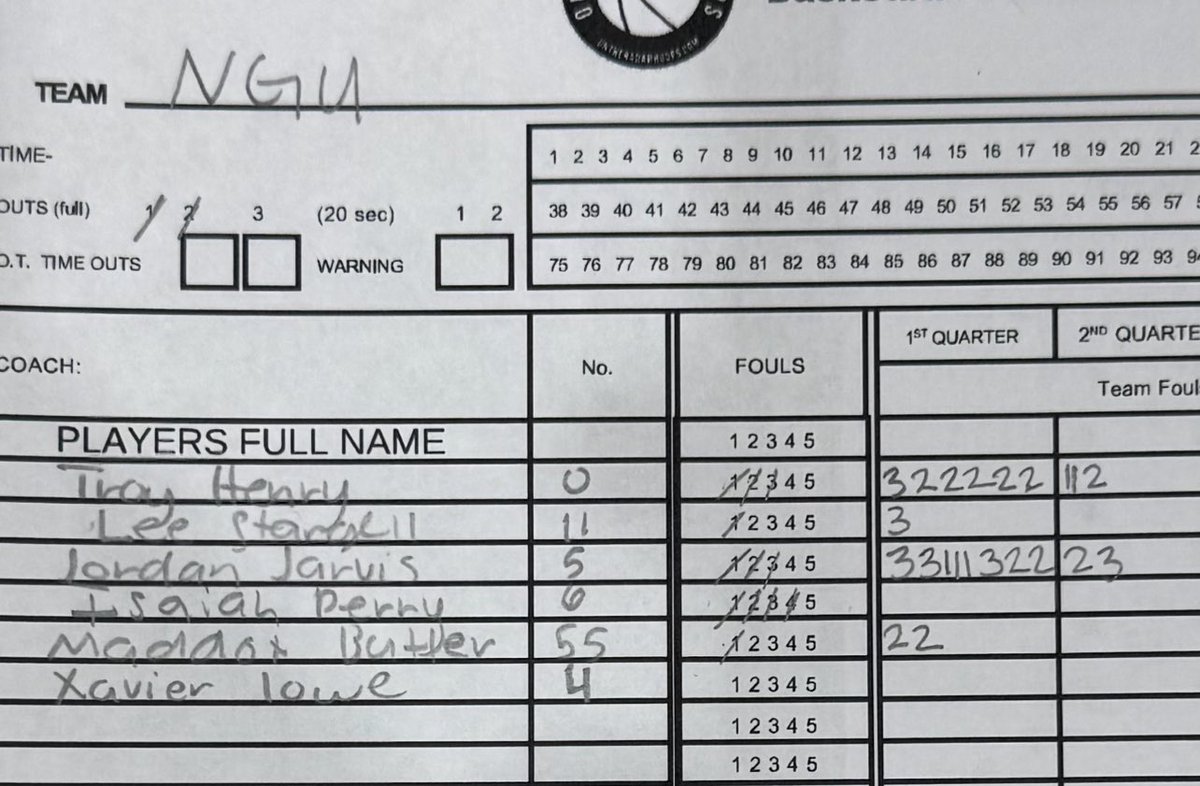 ONTHERADARHOOPS.COM
TEAM NGU
TIME-
OUTS (full) 1 2 3 (20 sec) 1 2
O.T. TIME OUTS WARNING
1 2 3 4 5 6 7 8 9 10 11 12 13 14 15 16 17 18 19 20 21 2
38 39 40 41 42 43 44 45 46 47 48 49 50 51 52 53 54 55 56 57 5
75 76 77 78 79 80 81 82 83 84 85 86 87 88 89 90 91 92 93 94
COACH: No. FOULS 1ST QUARTER 2ND QUARTE
Team Foul
PLAYERS FULL NAME 1 2 3 4 5
Troy Henry 0 1 2 3 4 5 322222 112
Lee 11 1 2 3 4 5 3
Jordan Jarvis 5 1 2 3 4 5 33111322 23
Isaiah Perry 6 1 2 3 4 5
Maddox Butler 55 1 2 3 4 5 22
Xavier lowe 4 1 2 3 4 5
1 2 3 4 5
1 2 3 4 5